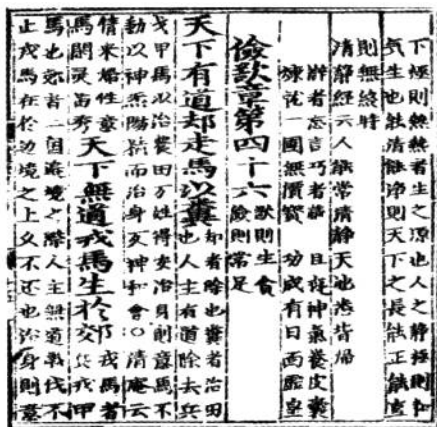 下極則熱熱者生之源也人之靜極則和
氣生也能清能淨則天下之長能正能直
則無終時
清靜經云人能常清靜天地悉皆歸
辯者忘言巧者 且與神氣養皮囊
煉就一團無價寶 功成有日面虛皇
儉欲章第四十六 猒則生貪
儉則常足
天下有道却走馬以糞 却者除也糞者治田
也人主有道除去兵
戈甲馬以治農田万姓得安治身則意馬不
動以神炁陽 而治身 神和會〇清庵云
情 性
馬閑靈苗秀 天下無道戎馬生於郊 戎馬者
兵戎甲
馬也郊者二國邊境之際人主無道戰伐不
止戎馬在於边境之上久不还也治身則意